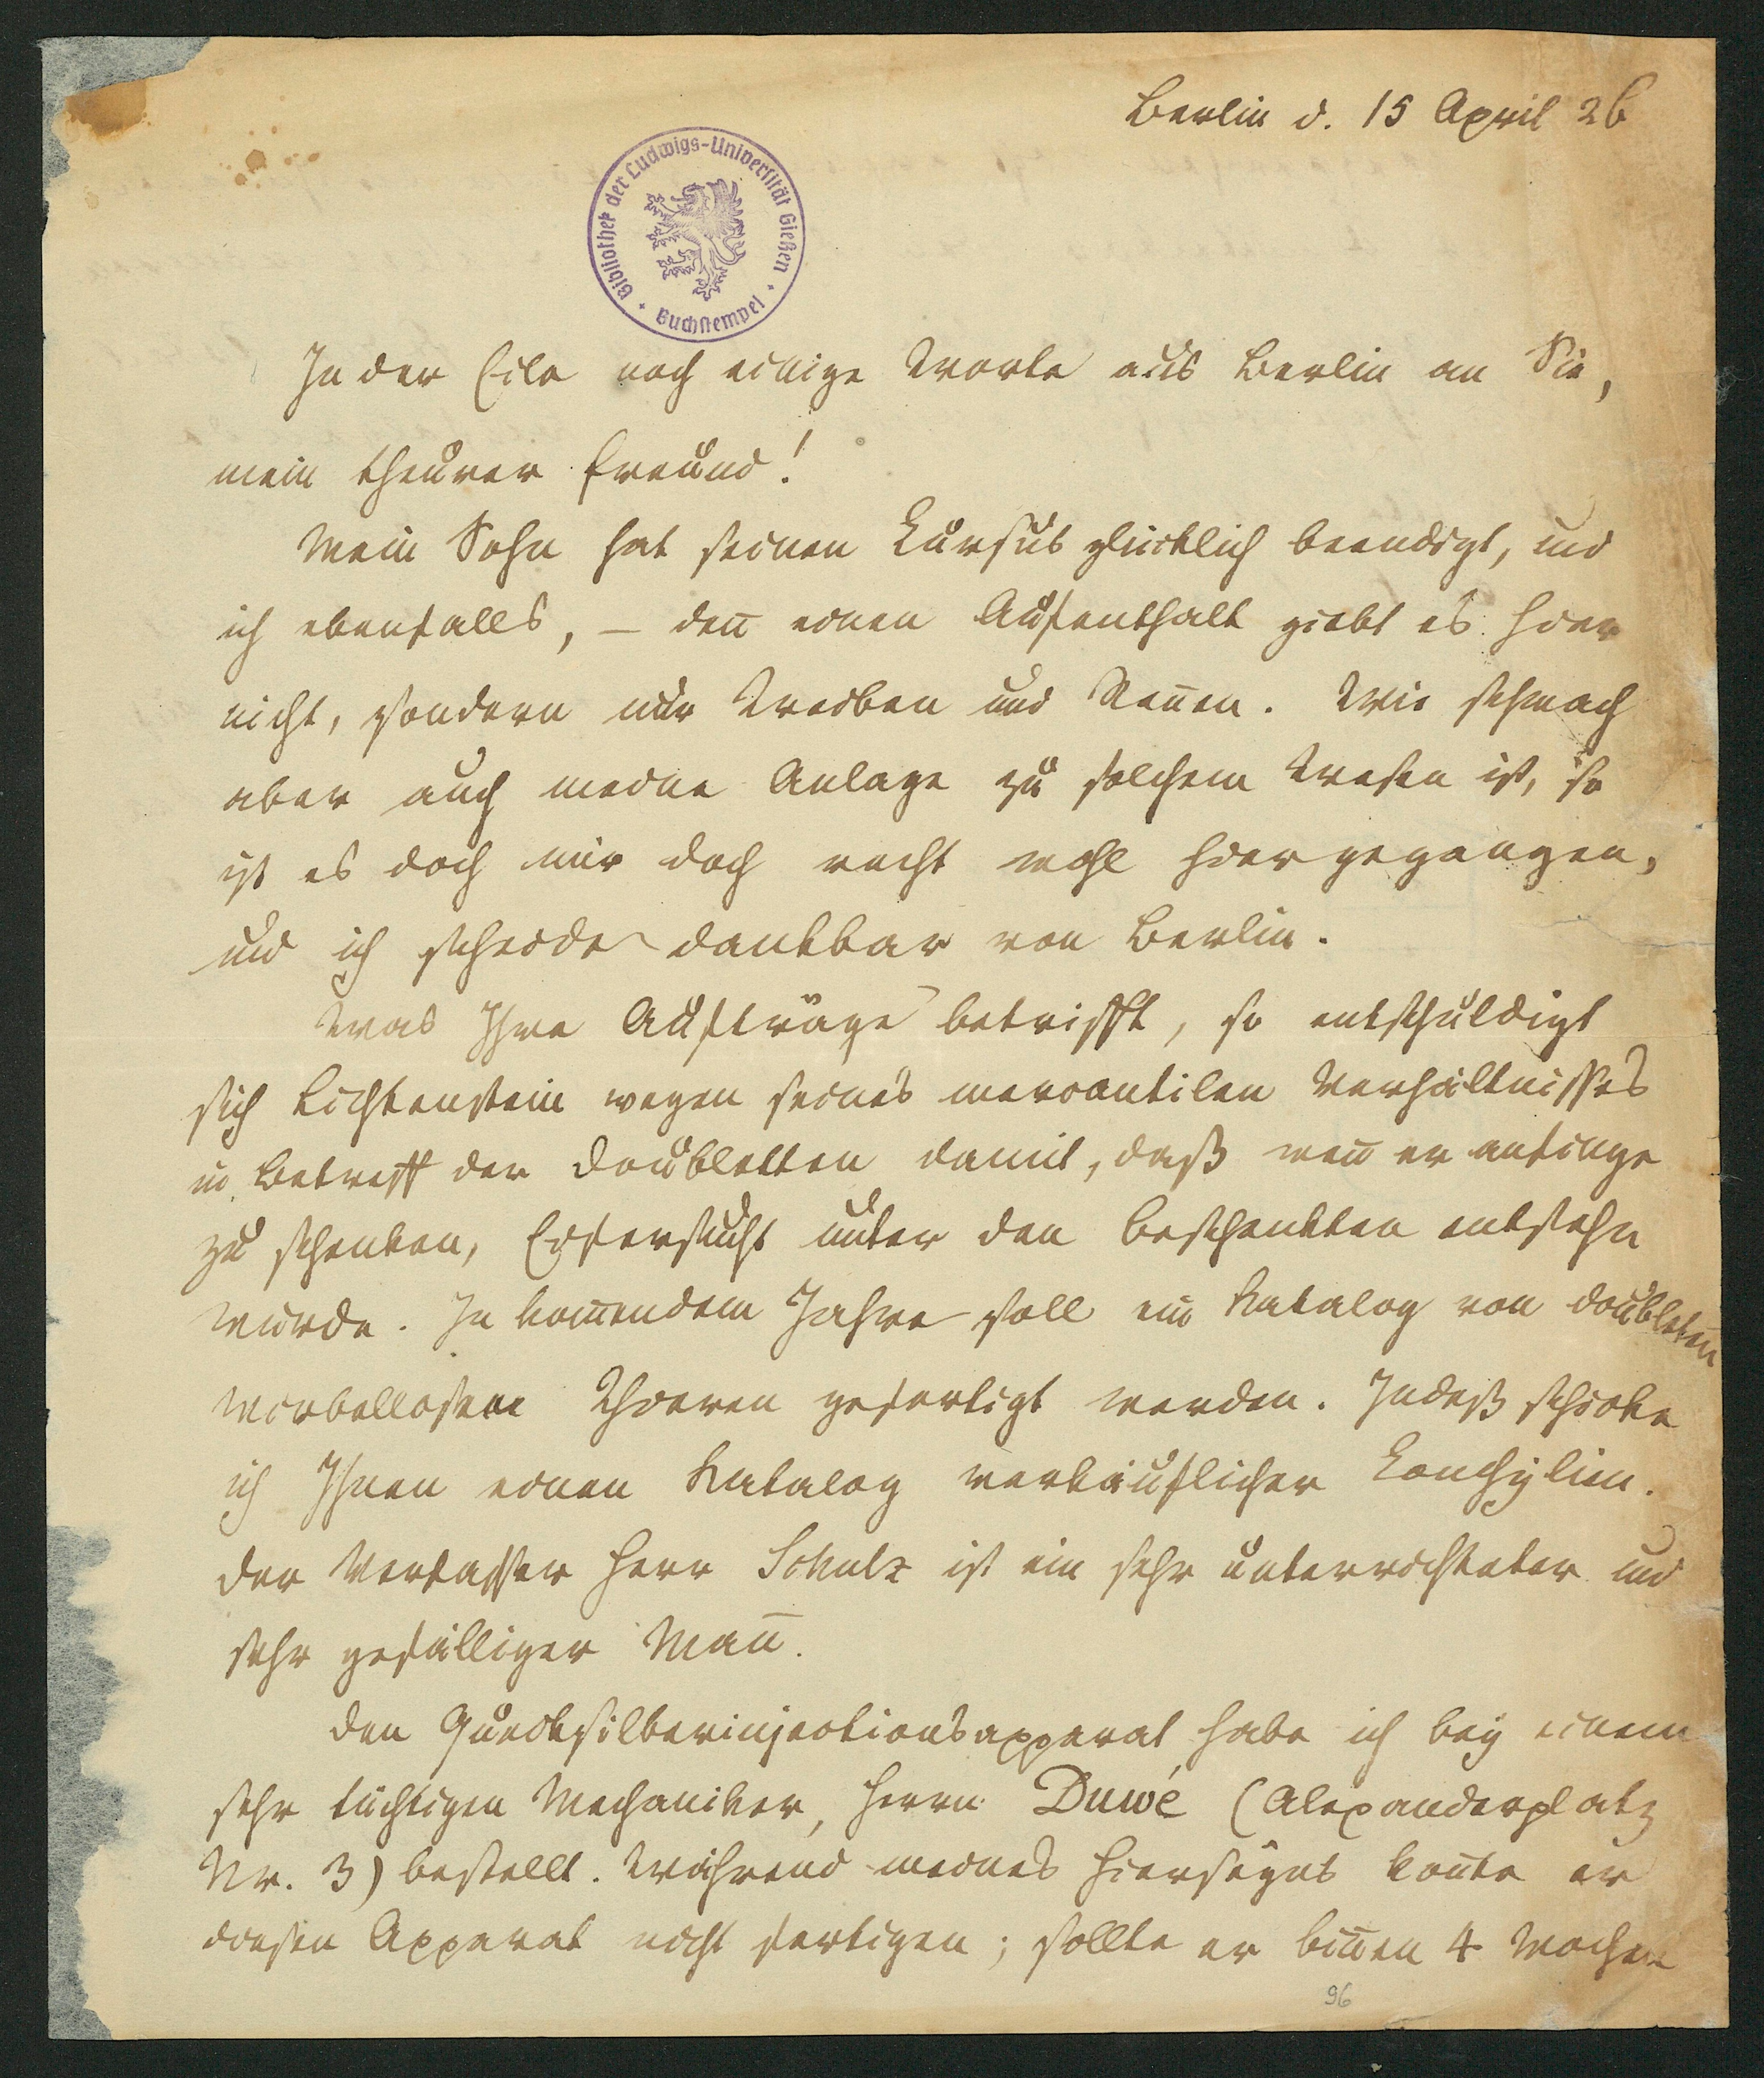 Berlin d. 15 April 26
Bibliothek der Ludwigs-Universität Gießen
Buchstempel
In der Eile noch einige Worte aus Berlin an Sie,
mein theurer Freund!
Mein Sohn hat seinen Cursus glücklich beendigt, und
ich ebenfalls, – den̄ einen Aufenthalt giebt es hier
nicht, sondern nur Treiben und Ren̄en. Wie schwach
aber auch meine Anlage zu solchem Wesen ist, so
ist es doch mir doch recht wohl hier gegangen,
und ich scheide dankbar von Berlin.
Was Ihre Aufträge betrifft, so entschuldigt
sich Lichtenstein wegen seines mercantilen Verhältnisses
in Betreff der Doubletten damit, daß wen̄ er anfinge
zu schenken, Eifersucht unter den Beschenkten entstehn
würde. In kom̄endem Jahre soll ein Katalog von doubleten
wirbellosen Thieren gefertigt werden. Indeß schicke
ich Ihnen einen Katalog verkäuflicher Conchylien.
Der Verfasser Herr Schulz ist ein sehr unterrichteter und
sehr gefälliger Man̄.
Den Quecksilberinjectionsapparat habe ich bey einem
sehr tüchtigen Mechaniker, Herrn Duwé (Alexanderplatz
Nr. 3) bestellt. Während meines Hierseyns kon̄te er
diesen Apparat nicht fertigen; sollte er bin̄en 4 Wochen
96